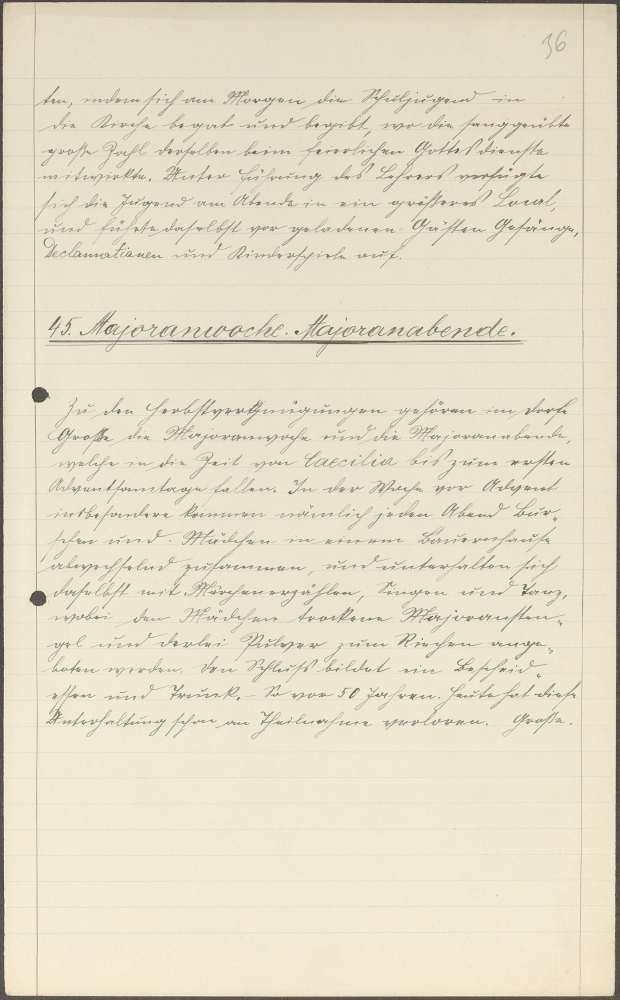 36
ten, indem sich am Morgen die Schuljugend in
die Kirche begab und begibt, wo die sanggeübte
große Zahl derselben beim feierlichen Gottesdienste
mitwirkte. Unter Führung des Lehrers verfügte
sich die Jugend am Abende in ein größeres Local,
und führte daselbst vor geladenen Gästen Gesänge,
Declamationen und Kinderspiele auf.
45. Majoranwoche. Majoranabende.
Zu den Herbstvergnügungen gehören im Dorfe
Große die Majoranwoche und die Majoranabende,
welche in die Zeit von Caecilia bis zum ersten
Adventsamtage fallen. In der Woche vor Advent
insbesondere kommen nämlich jeden Abend Bur-
schen und Mädchen in einem Bauernhause
abwechselnd zusammen, und unterhalten sich
daselbst mit Märchenerzählen, Singen und Tanz,
wobei den Mädchen trockene Majoransten-
gel und derlei Pulver zum Riechen ange-
boten werden. Den Schluß bildet ein Bescheid-
essen und Trunk. - So vor 50 Jahren. Heute hat diese
Unterhaltung schon an Theilnahme verloren. Große.